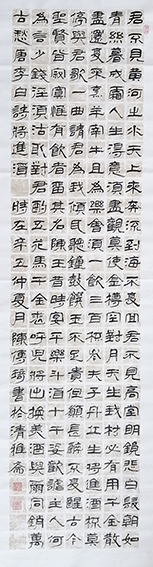 君不見黃河之水天上來奔流到海不復回君不見高堂明鏡悲白髮朝如
青絲暮成雪人生得意須盡歡莫使金樽空對月天生我材必有用千金散
盡還復來烹羊宰牛且為樂會須一飲三百杯岑夫子丹丘生將進酒杯莫
停與君歌一曲請君為我傾耳聽鐘鼓饌玉不足貴但願長醉不復醒古今
聖賢皆寂寞惟有飲者留其名陳王昔時宴平樂斗酒十千恣歡謔主人何
為言少錢徑須沽取對君酌五花馬千金裘呼兒將出換美酒與爾同銷萬
古愁唐李白詩將進酒時在辛丑仲夏月陳書於清雅齋